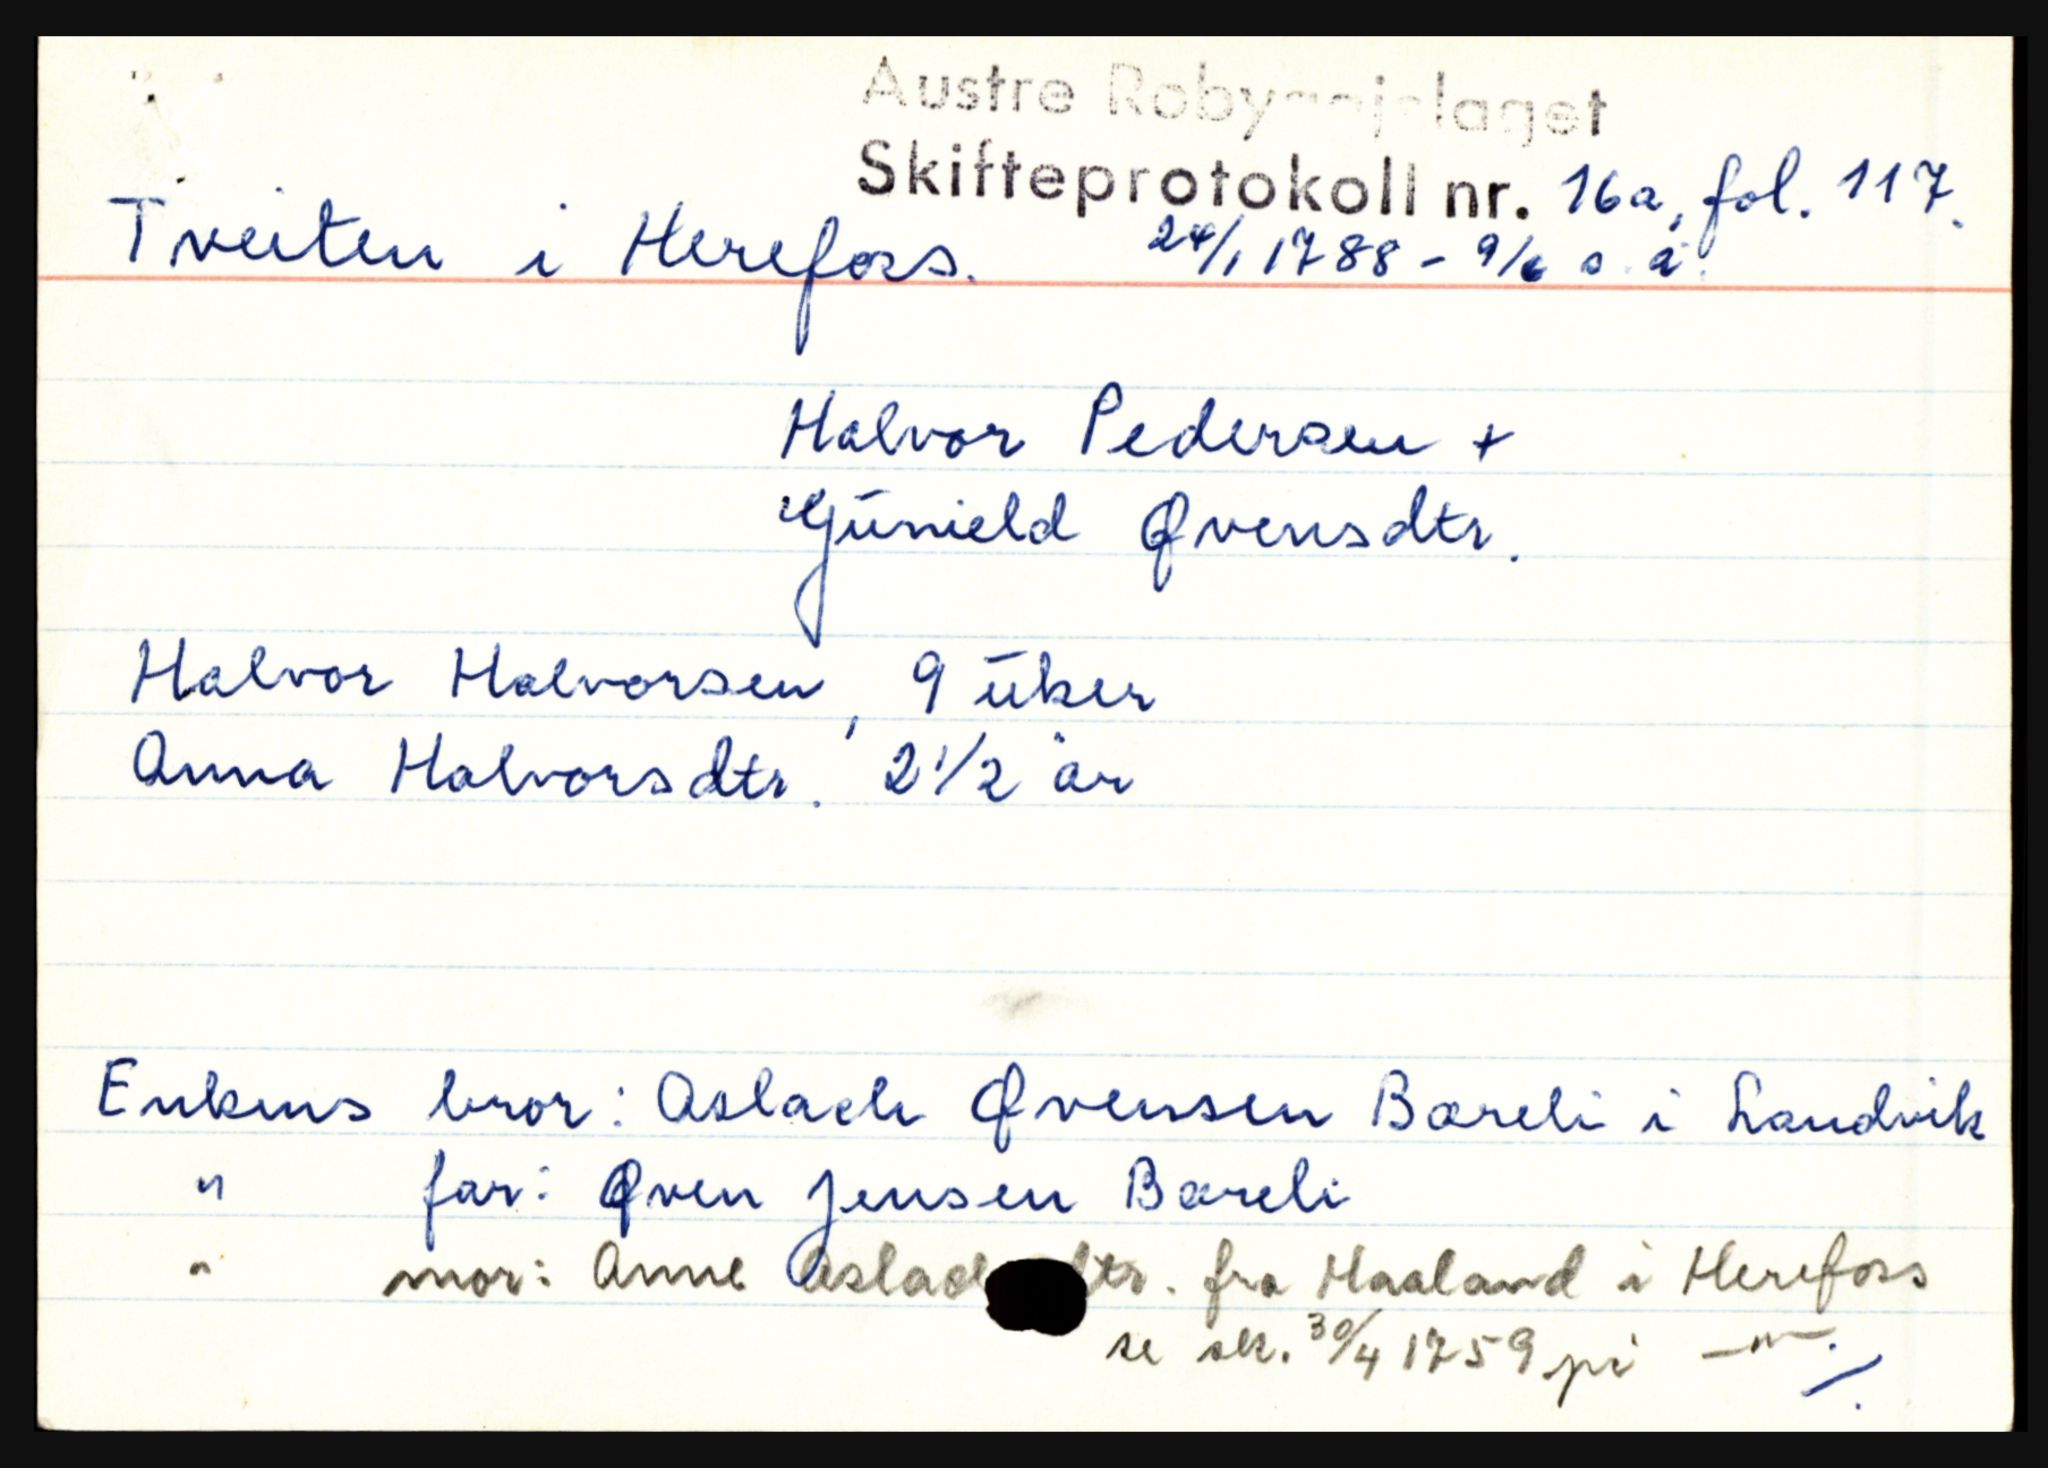 Austre Robyggjelaget
Skifteprotokoll nr. 16a, fol. 117.
Tveiten i Herefoss. 24/1 1788 - 9/6 s. å.
Halvor Pedersen +
Gūnield Øvensdtr.
Halvor Halvorsen, 9 ūker
Anna Halvorsdtr. 2 1/2 år
Enkens bror: Aslach Øvensen Bæreli i Landvik
" far: Øven Jensen Bæreli
" mor: Anne dtr. fra Haaland i Herefoss
se sk. 30/4 1759 på —"—.